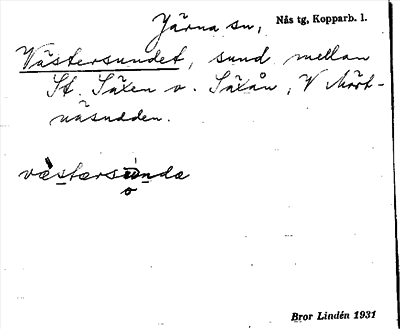 Järna sn, Nås tg, Kopparb. l.
Västersundet, sund mellan
St. Säxen o. Säxån, V Mört-
näsudden.
Bror Lindén 1931